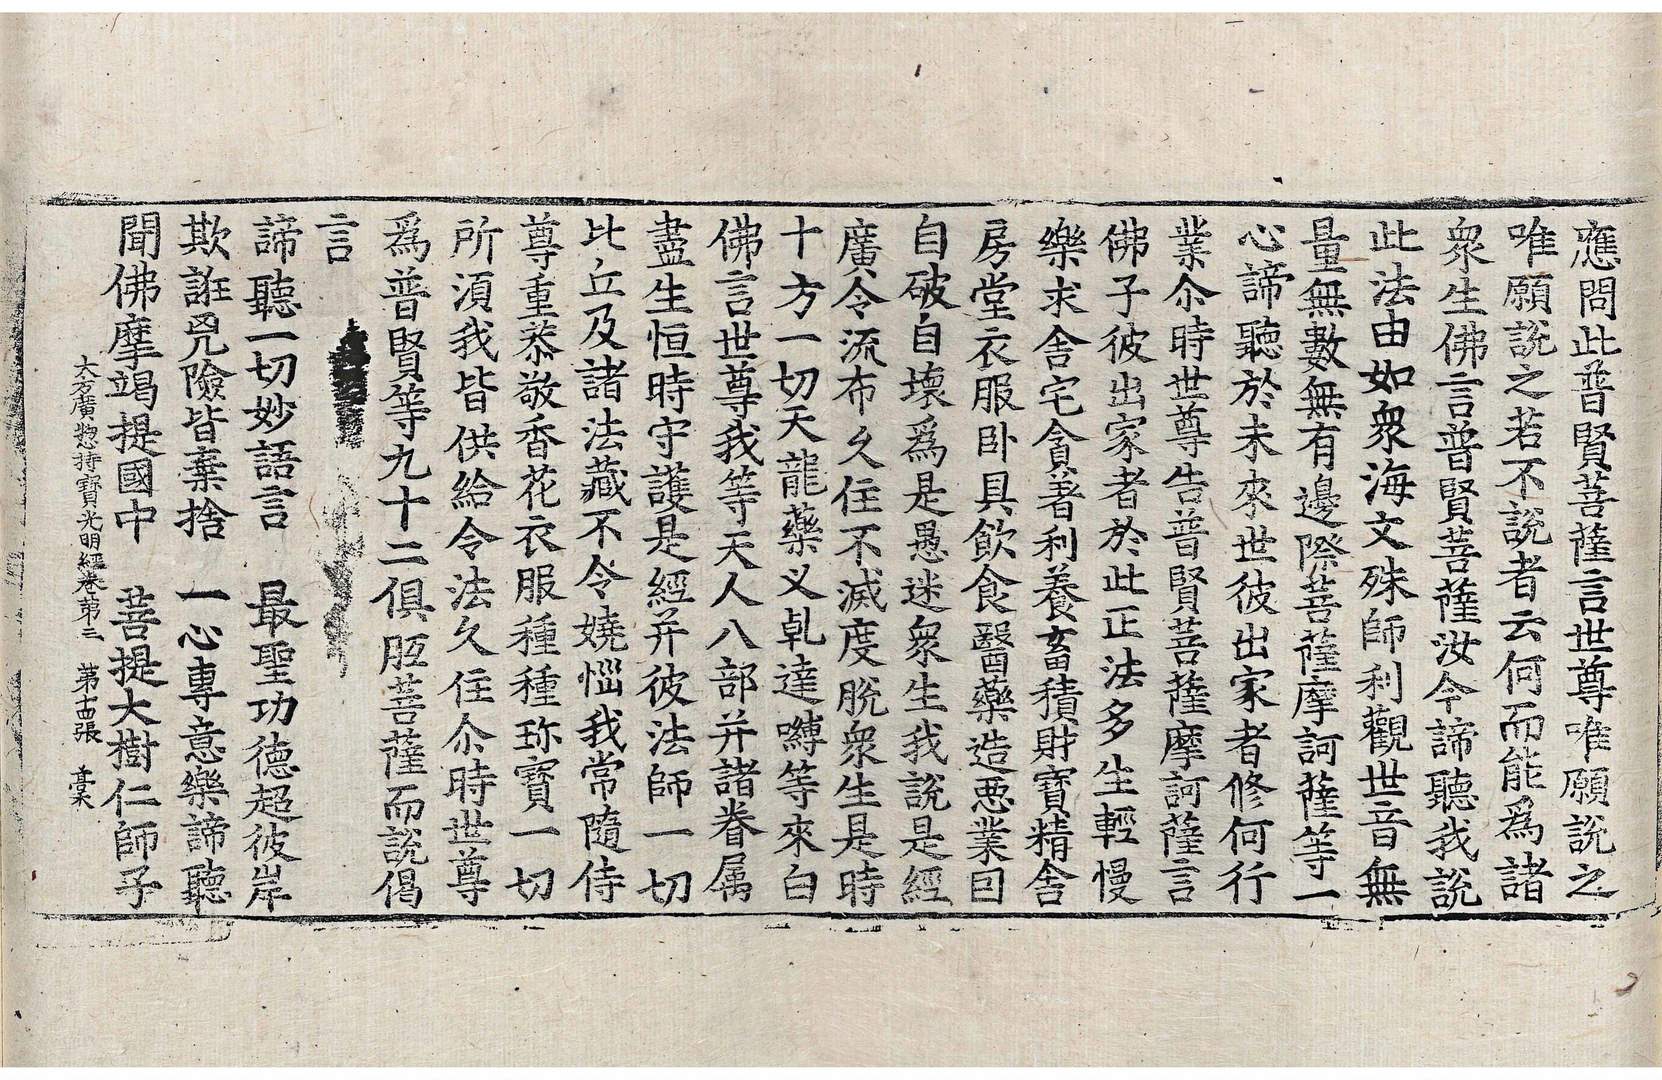 應問此普賢菩薩言世尊唯願說之
唯願說之若不說者云何而能爲諸
衆生佛言普賢菩薩汝今諦聽我說
此法由如衆海文殊師利觀世音無
量無數無有邊際菩薩摩訶薩等一
心諦聽於未來世彼出家者修何行
業尒時世尊告普賢菩薩摩訶薩言
佛子彼出家者於此正法多生輕慢
樂求舍宅貪著利養畜積財寶精舍
房堂衣服卧具飲食醫藥造惡業因
自破自壞爲是愚迷衆生我說是經
廣令流布久住不滅度脫衆生是時
十方一切天龍藥义乹達嚩等來白
佛言世尊我等天人八部并諸眷属
盡生恒時守護是經并彼法師一切
比丘及諸法藏不令嬈惱我常隨侍
尊重恭敬香花衣服種種珎寶一切
所湏我皆供給令法久住尒時世尊
爲普賢等九十二俱胝菩薩而說偈
言
諦聽一切妙語言　最聖功德超彼岸
欺誑兇險皆棄捨　一心專意樂諦聽
聞佛摩竭提國中　菩提大樹仁師子
大方廣惣持寶光明經卷第三　第十四張